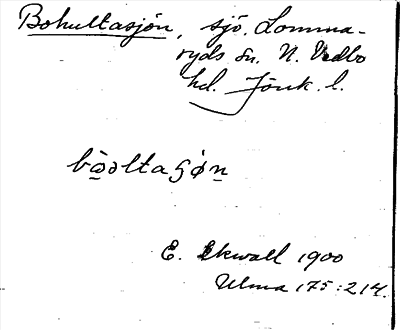 Bohultasjön, sjö. Lomma-
ryds sn. N. Vedbo
hd. Jönk. l.
bò̱əltaʂøn̲
E. Ekwall 1900
Ulma 175:214.